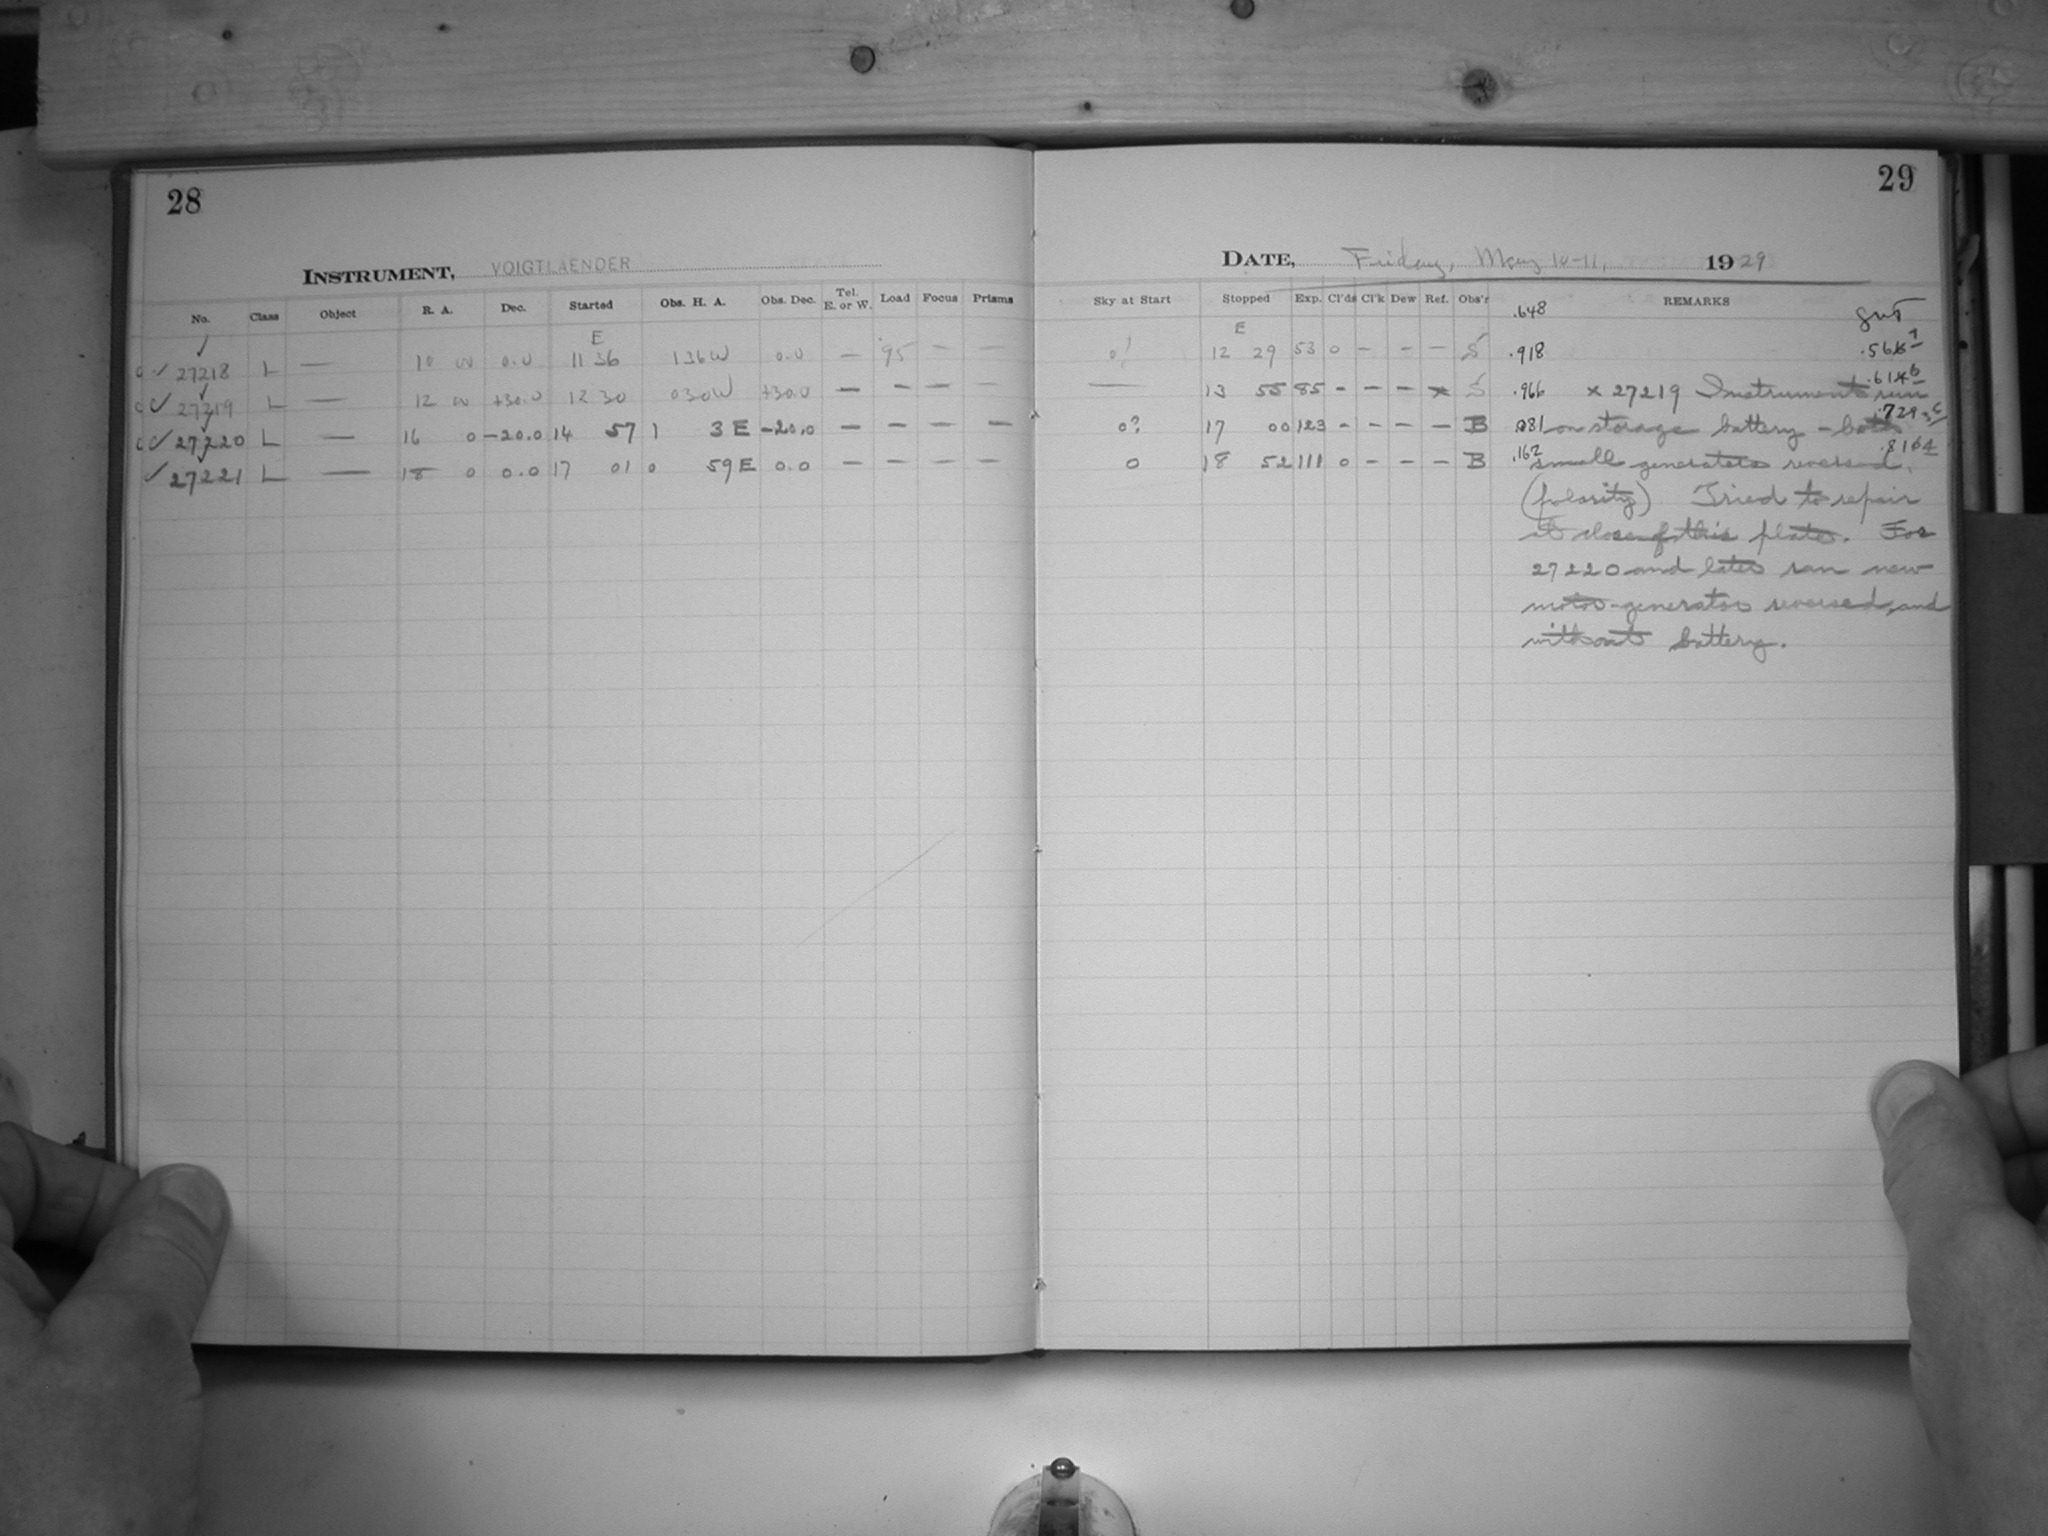 28
INSTRUMENT, VOIGTLAENDER
No. Class Object R. A. Dec. Started Obs. H. A. Obs. Dec. Tel. E. or W. Load Focus Prisms
E
✓ 27218 L — 10 00 0.0 11 36 1 36 W 0.0 — 95 — —
✓ 27219 L — 12 00 +30.0 12 30 0 30 W +30.0 — — — —
✓ 27220 L — 16 0 -20.0 14 57 1 3 E -20.0 — — — —
✓ 27221 L — 18 0 0.0 17 01 0 59 E 0.0 — — — —
29
DATE, Friday, May 10-11, 1929
Sky at Start Stopped Exp. Cl'ds Cl'k Dew Ref. Obs'r REMARKS
.648
E
12 29 53 0 - - - S .918
— 13 55 85 - - - x S .966 x 27219 Instrument run
0? 17 00 123 - - - - B .081 on storage battery - both
0 18 52 111 0 - - - B .162 small generators reversed.
(polarity) Tried to repair
it close of this plate. For
27220 and later ran new
motor-generator reversed, and
without battery.